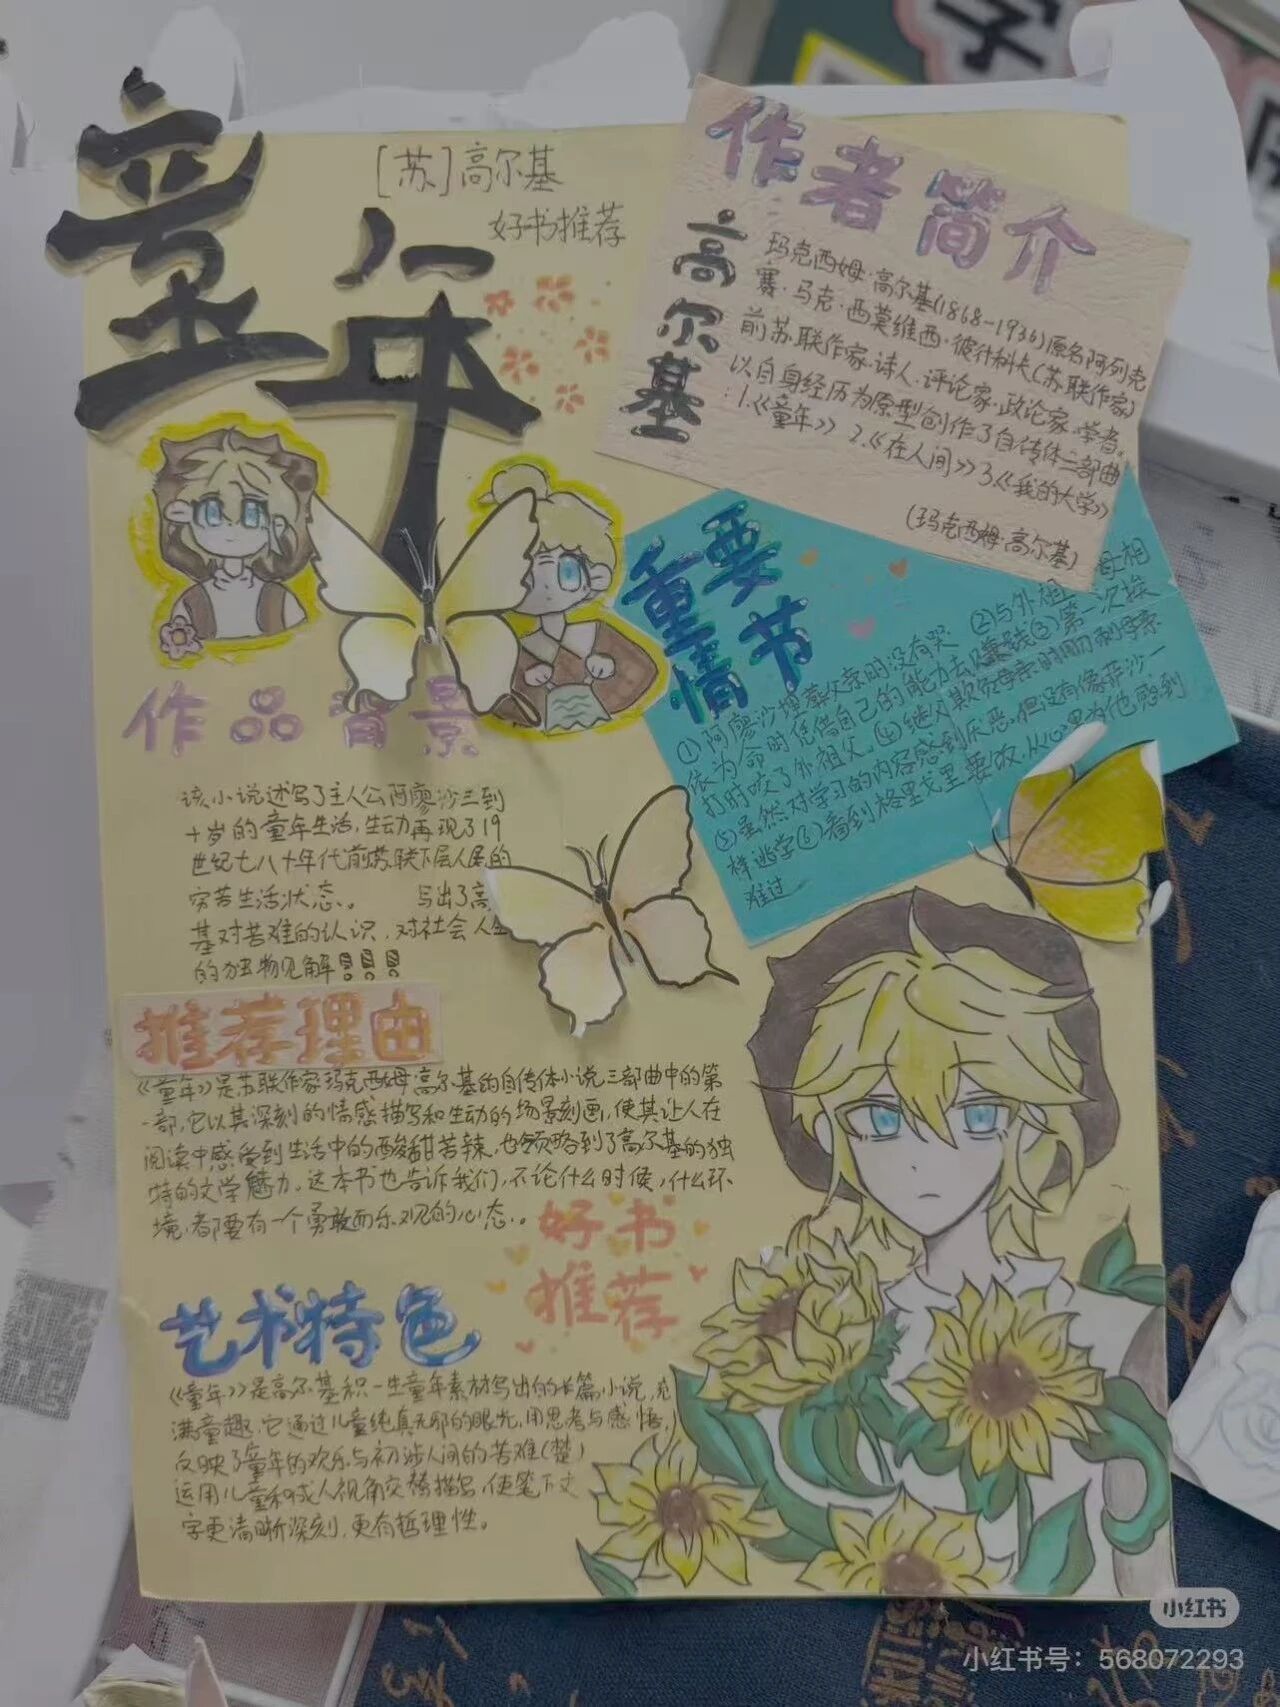 童年
[苏]高尔基
好书推荐
作者简介
高尔基
玛克西姆·高尔基(1868-1936)原名阿列克
赛·马克·西莫维西·彼什科夫(苏联作家)
前苏联作家·诗人·评论家·政论家·学者。
以自身经历为原型创作了自传体三部曲
:1.《童年》 2.《在人间》3.《我的大学》
(玛克西姆·高尔基)
重要
情节
②与外祖 母相
①阿廖沙埋葬父亲时没有哭 ③第一次挨
依为命时凭借自己的能力去
打时咬了外祖父。④继父欺负母亲时用
⑤虽然对学习的内容感到厌恶,但没有像萨沙一
样逃学⑥看到格里戈里要饭,从心里为他感到
难过
作品背景
该小说述写了主人公阿廖沙三到
十岁的童年生活,生动再现了19
世纪七八十年代前苏联下层人民的
穷苦生活状态。 写出了高
基对苦难的认识,对社会人生
的独物见解!!!
推荐理由
《童年》是苏联作家玛克西姆·高尔基的自传体小说三部曲中的第
一部,它以其深刻的情感描写和生动的场景刻画,使其让人在
阅读中感受到生活中的酸甜苦辣,也领略到了高尔基的独
特的文学魅力。这本书也告诉我们,不论什么时候,什么环
境,都要有一个勇敢而乐观的心态。
好书
推荐
艺术特色
《童年》是高尔基积一生童年素材写出的长篇小说,充
满童趣,它通过儿童纯真无邪的眼光,用思考与感悟,
反映了童年的欢乐与初涉人间的苦难(楚)
运用儿童和成人视角交替描写,使笔下文
字更清晰深刻,更有哲理性。
小红书
小红书号:568072293